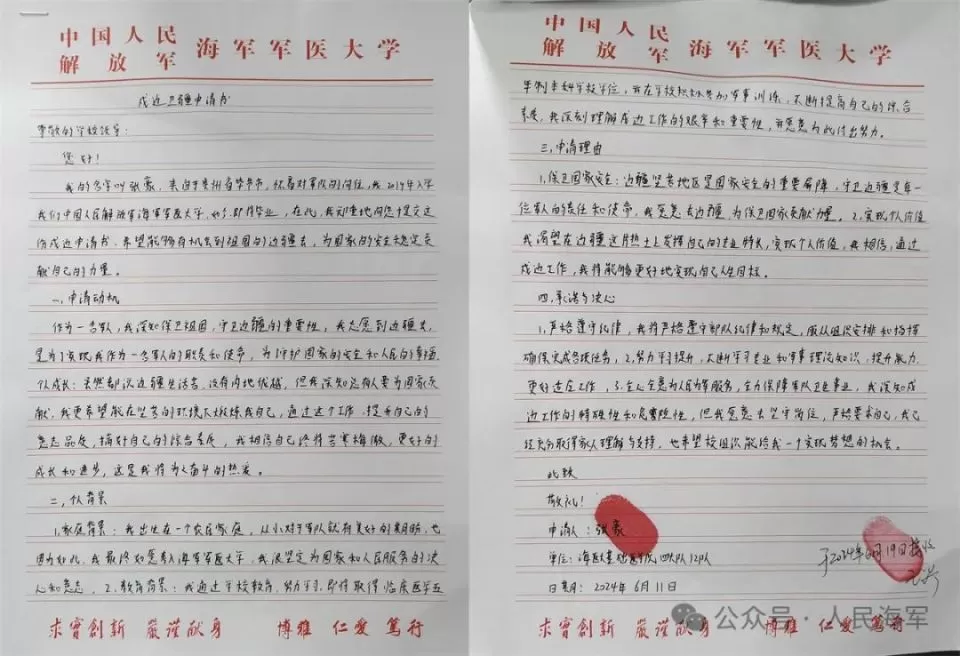 中国人民
解放军 海军军医大学
戍边卫疆申请书
尊敬的学校领导:
您好!
我的名字叫张豪,来自于贵州省毕节市。怀着对军队的向往,我2019年入学
我们中国人民解放军海军军医大学,如今即将毕业,在此,我郑重地向您提交这
份戍边申请书,希望能够有机会到祖国的边疆去,为国家的安全稳定贡
献自己的力量。
一、申请动机
作为一名军人,我深知保卫祖国,守卫边疆的重要性,我志愿到边疆去,
是为了实现我作为一名军人的职责和使命,为了守护国家的安全和人民的幸福。
个人成长:虽然都说边疆生活苦,没有内地优越,但我深知总有人要为国家贡
献,我更希望能在坚苦的环境下锻炼我自己,通过这个工作,提升自己的
意志品质,搞好自己的综合素质,我相信自己终将苦寒梅傲,更好的
成长和进步,这是我将为之奋斗的热爱。
二、个人背景
1.家庭背景:我出生在一个农民家庭,从小对于军队就有美好的期盼,也
因为如此,我最终如愿考入海军军医大学,我很坚定为国家和人民服务的决
心和意志,2.教育背景:我通过学校教育,努力学习,即将取得临床医学五
求实创新 严谨献身 博雅 仁爱 笃行
中国人民
解放军 海军军医大学
年制本科学校学位,并在学校积极参加军事训练,不断提高自己的综合
素质,我深刻理解戍边工作的艰辛和重要性,并愿意为此付出努力。
三、申请理由
1.保卫国家安全:边疆坚苦地区是国家安全的重要屏障,守卫边疆是每一
位军人的责任和使命,我愿意去边疆,为保卫国家贡献力量。2.实现个人价值
我渴望在边疆这片热土上发挥自己的专业特长,实现个人价值,我相信,通过
戍边工作,我将能够更好地实现自己人生目标。
四、承诺与决心
1.严格遵守纪律,我将严格遵守部队纪律和规定,服从组织安排和指挥
确保完成各项任务,2.努力学习提升,不断学习专业和军事理论知识,提升能力
更好适应工作,3.全心全意为人民为军服务,全力保障军队卫生事业,我深知戍
边工作的特殊性和危险性,但我愿意去坚守岗位,严格要求自己,我已
经充分取得家人理解与支持,也希望校组织能给我一个实现梦想的机会。
此致
敬礼!
申请人:张豪
单位:海医大基础医学院四大队12队
日期:2024年6月11日
于2024年6月19日接收
求实創新 嚴谨献身 博雅 仁愛 篤行
公众号 · 人民海军